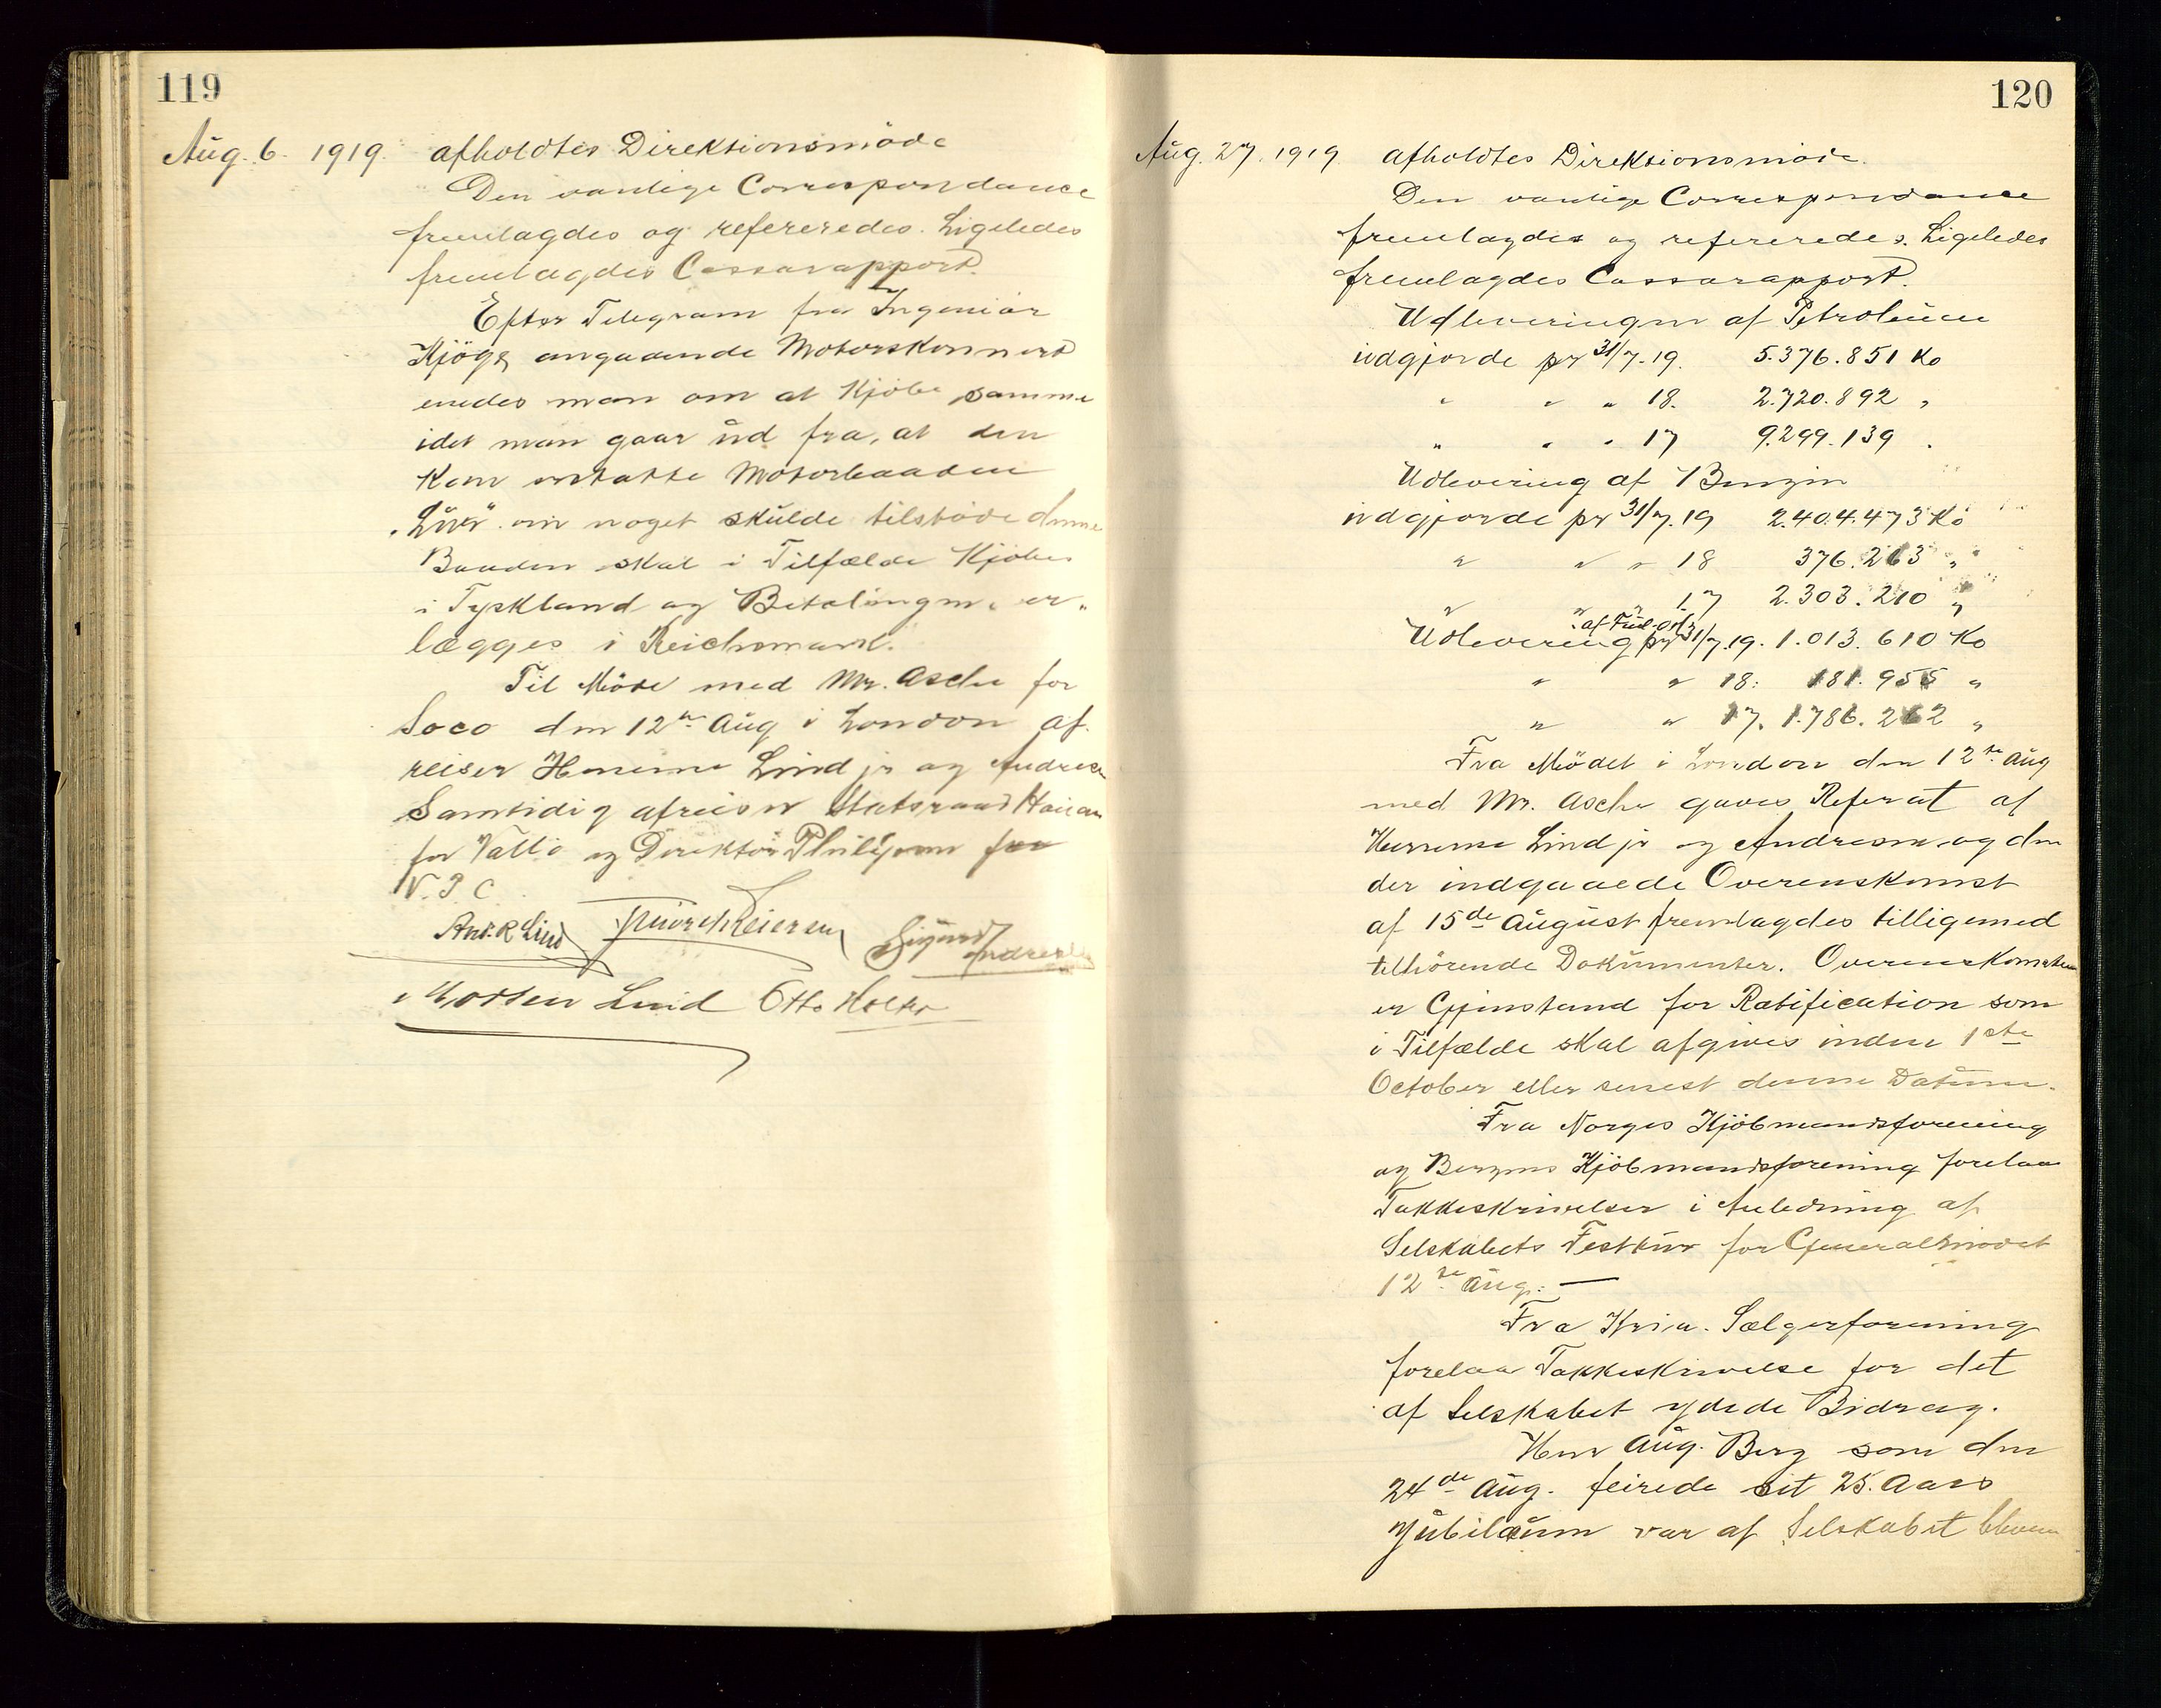 119
Aug. 6. 1919. afholdtes Direktionsmöde
Den vanlige Correspondance
fremlagdes og refereredes. Ligeledes
fremlagdes Cassarapport.
Efter Telegram fra Ingeniör
Kjöge angaaende Motorskonnert
enedes man om at Kjöbe samme
idet man gaar ud fra, at den
Kan erstatte Motorbaaden
om noget skulde tilstöde denne
Baaden skal i Tilfælde Kjöbes
i Tyskland og Betalingen er-
lægges i Reichsmark.
Til Möde med Mr. Asche for
Soco den 12te Aug i London af-
reiser Herrerne Lind jr og Andresen
Samtidig afreiser Statsraad
for Vallö og Direktör for
V. P. C.
Ant. R Lind Sigurd Andresen
Morten Lind Otto Holter
120
Aug. 27. 1919 afholdtes Direktionsmöde.
Den vanlige Correspondance
fremlagdes og refereredes. Ligeledes
fremlagdes Cassarapport.
Udleveringen af Petroleum
udgjorde pr 31/7.19. 5.376.851 Ko
" " " 18. 2.720.892 "
" " " 17 9.299.139 "
Udlevering af Benzin
udgjorde pr 31/7.19 2.404.473 Ko
" " " 18 376.263 "
" " " 17 2.303.210 "
af Fuel-Oil
Udlevering pr 31/7.19. 1.013.610 Ko
" " 18: 181.955 "
" " 17. 1.786.262 "
Fra Mödet i London den 12te Aug
med Mr. Asche gaves Referat af
Herrerne Lind jr og Andresen og den
der indgaaede Overenskomst
af 15de August fremlagdes tilligemed
tilhörende Dokumenter. Overenskomsten
er Gjenstand for Ratification som
i Tilfælde skal afgives inden 1ste
October eller senest denne Datum.
Fra Norges Kjöbmandsforening
og Bergens Kjöbmandsforening forelaa
Takkeskrivelser i Anledning af
Selskabets Festtur for Generalmödet
12te Aug. —
Fra Kria. Sælgerforening
forelaa Takkeskrivelse for det
af Selskabet ydede Bidrag.
Herr Aug. Berg som den
24de Aug. feirede sit 25. Aars
Jubilæum var af Selskabet bleven